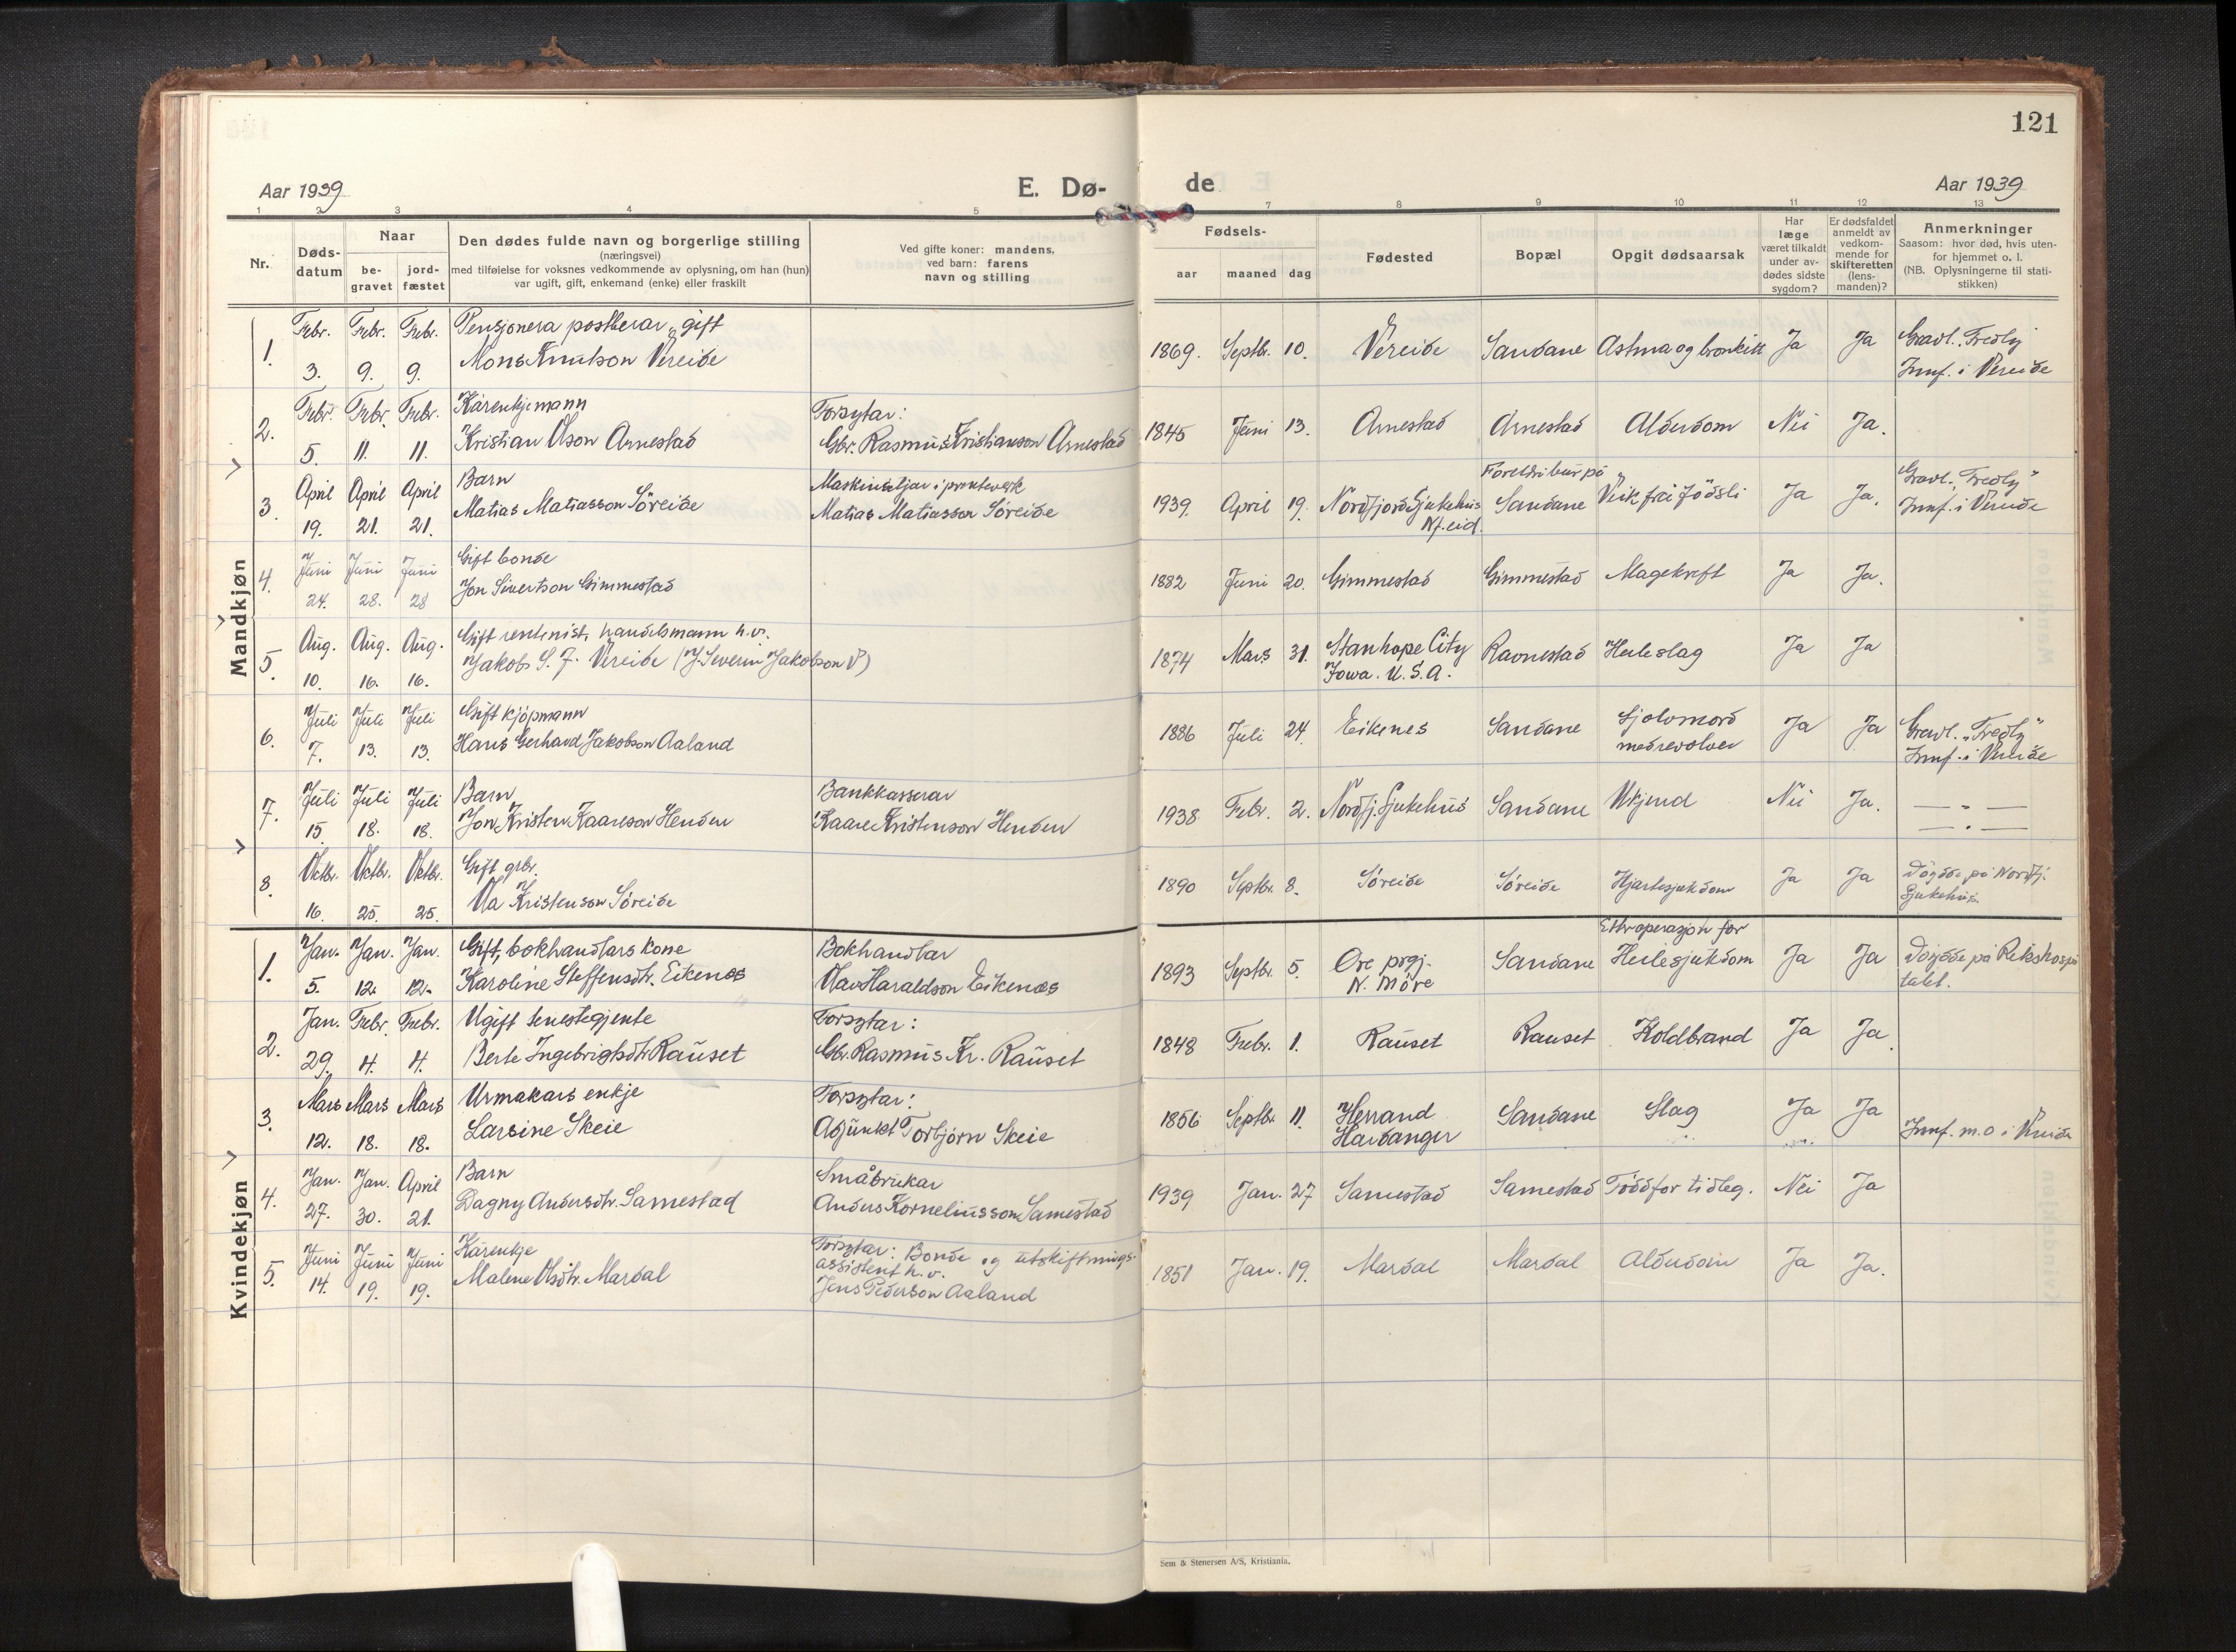 121
Aar 1939
E. Dø-
de
Aar 1939
1 2 3 4 5 7 8 9 10 11 12 13
Nr.
Døds-
datum
Naar
be-
gravet
jord-
fæstet
Den dødes fulde navn og borgerlige stilling
(næringsvei)
med tilføielse for voksnes vedkommende av oplysning, om han (hun)
var ugift, gift, enkemand (enke) eller fraskilt
Ved gifte koner: mandens,
ved barn: farens
navn og stilling
Fødsels-
aar maaned dag
Fødested
Bopæl
Opgit dødsaarsak
Har
læge
været tilkaldt
under av-
dødes sidste
sygdom?
Er dødsfaldet
anmeldt av
vedkom-
mende for
skifteretten
(lens-
manden)?
Anmerkninger
Saasom: hvor død, hvis uten-
for hjemmet o. l.
(NB. Oplysningerne til stati-
stikken)
Mandkjøn
1. Febr. 3. Febr. 9. Febr. 9.
Pensjonera postberar, gift
Mons Knutson Vereide
1869. Septbr. 10. Vereide Sandane Astma og bronkitt Ja Ja
Gravl. "Fredly
Innf. i Vereide
2. Febr. 5. Febr. 11. Febr. 11.
Kårenkjemann
Kristian Olson Arnestad
Forsytar:
Gbr. Rasmus Kristianson Arnestad
1845 Juni 13. Arnestad Arnestad Alderdom Nei Ja.
3. April 19. April 21. April 21.
Barn
Matias Matiasson Söreide
Matias Matiasson Söreide
1939. April 19. Nordfjord Sjukehus
Nf.eid.
Foreldri bur på
Sandane
Veik frå födsli
Ja Ja.
Gravl. "Fredly"
Innf. i Vereide
4. Juni 24. Juni 28. Juni 28
Gift bonde
Jon Sivertson Gimmestad
1882 Juni 20. Gimmestad Gimmestad Magekreft Ja Ja.
5. Aug. 10. Aug. 16. Aug. 16.
Gift rentenist, handelsmann h.v.
Jakob S. J. Vereide (J. Severin Jakobson V)
1874 Mars 31. Stanhope City
Iowa. U.S.A.
Ravnestad Heileslag Ja Ja
6. Juli 7. Juli 13. Juli 13.
Gift kjöpmann
Hans Gerhard Jakobson Aaland
1886 Juli 24. Eikenes Sandane
Sjolvmord
med revolver
Ja Ja
Gravl. "Fredly"
Innf. i Vereide
7. Juli 15. Juli 18. Juli 18.
Barn
Jon Kristen Kaareson Henden
Bankkasserar
Kaare Kristenson Henden
1938 Febr. 2. Nordfj. Sjukehus Sandane Ukjend Nei Ja.
— " —
— " —
8. Oktbr. 16. Oktbr. 25. Oktbr. 25.
Gift gbr.
Ola Kristenson Söreide
1890 Septbr. 8. Söreide Söreide Hjartesjukdom Ja Ja
Döydde på Nordfj.
Sjukehus.
Kvindekjøn
1. Jan. 5. Jan. 12. Jan. 12.
Gift, bokhandlars kone
Karoline Steffensdtr. Eikenæs
Bokhandlar
Olav Haraldson Eikenæs
1893 Septbr. 5. Øre prgj.
N. Möre
Sandane
Etter operasjon for
Heilesjukdom
Ja Ja
Döydde på Rikshospi
talet.
2. Jan. 29. Febr. 4. Febr. 4.
Ugift tenestegjente
Berte Ingebrigtsdtr Rauset
Forsytar:
Gbr. Rasmus Kr. Rauset
1848 Febr. 1. Rauset Rauset Koldbrand Ja Ja.
3. Mars 12. Mars 18. Mars 18.
Urmakars enkje
Larsine Skeie
Forsytar:
Adjunkt Torbjörn Skeie
1856 Septbr. 11. Herrand
Hardanger
Sandane Slag Ja Ja
Innf. m.o i Vereide
4. Jan. 27. Jan. 30. April 21.
Barn
Dagny Andersdtr. Samestad
Småbrukar
Anders Korneliusson Samestad
1939 Jan. 27 Samestad Samestad Född for tidleg. Nei Ja
5. Juni 14. Juni 19. Juni 19.
Kårenkje
Malene Olsdtr. Mardal
Forsytar: Bonde og utskiftnings-
assistent h.v.
Jens Pederson Aaland
1851 Jan. 19. Mardal Mardal Alderdom Ja Ja.
Sem & Stenersen A/S, Kristiania.